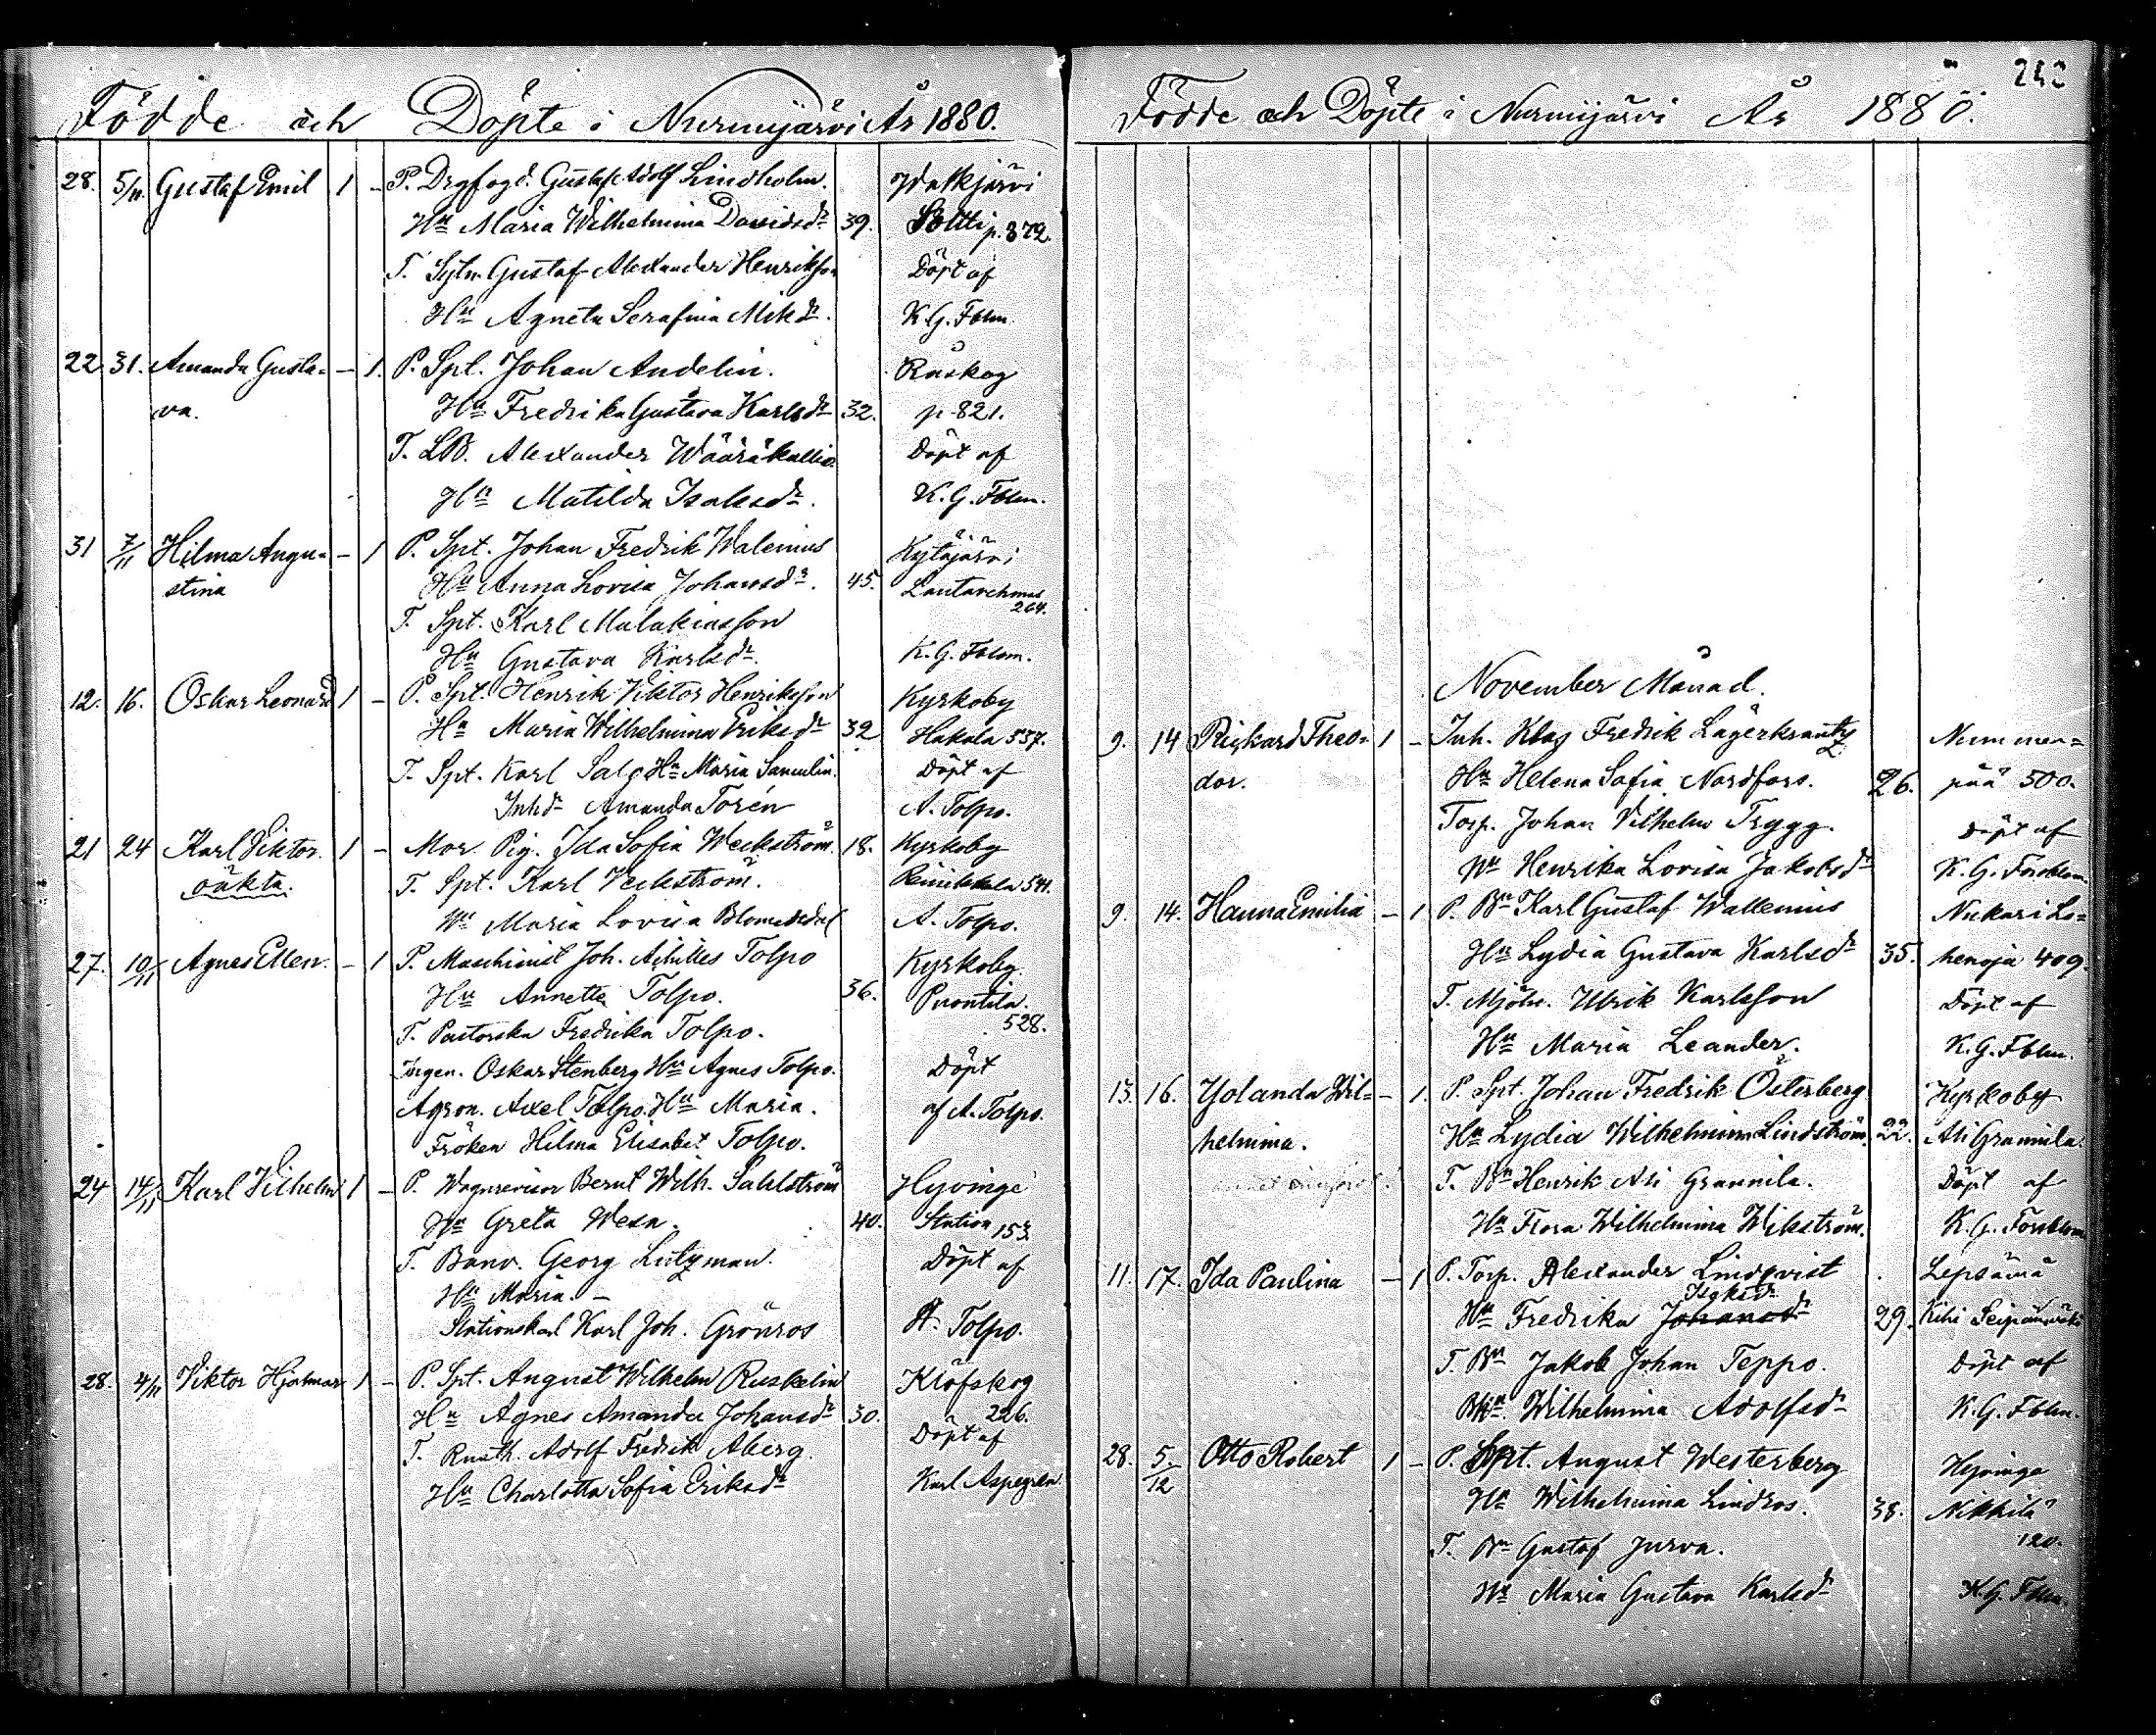 Födde och Döpte i Nurmijärvi År 1880.
28. 5/11. Gustaf Emil 1 – P. Drgfogd. Gustaf Adolf Lindholm.
Hu Maria Wilhelmina Davidsdr 39. p. 372.
T. Sytn. Gustaf Alexander Henriksson Döpt af
Hu Agneta Serafina Mikdr. K. G. Fblm.
22. 31. Amanda Gusta- – 1. P. Spt. Johan Andelin. Raskog
va. Hu Fredrika Gustava Karlsdr 32. p. 821.
T. LB. Alexander Wääräkallio. Döpt af
Hu Matilda Isaksdr. K. G. Fblm.
31 7/11 Hilma Augu- – 1 P. Spt. Johan Fredrik Walenius Kytäjärvi
stina Hu Anna Lovisa Johansdr. 45. 264.
T. Spt. Karl Malakiasson
Hu Gustava Karlsdr. K. G. Fblm.
12. 16. Oskar Leonard 1 – P. Spt. Henrik Viktor Henriksson Kyrkoby
Hu Maria Wilhelmina Eriksdr 32 Hakala 537.
T. Spt. Karl Salo Hu Maria Samulin. Döpt af
Inhdr Amanda Torén A. Tolpo.
21 24 Karl Viktor. 1 – Mor. Pig. Ida Sofia Weckström. 18. Kyrkoby
oäkta. T. Spt. Karl Veckström. 541.
Hu Maria Lovisa A. Tolpo.
27. 10/11 Agnes Ellen. – 1 P. Maschinist Joh. Achilles Tolpo Kyrkoby.
Hu Annette Tolpo. 36. Puontila.
T. Pastorska Fredrika Tolpo. 528.
Ingen. Oskar Stenberg Hu Agnes Tolpo. Döpt
Agron. Axel Tolpo. Hu Maria. af A. Tolpo.
Fröken Hilma Elisabet Tolpo.
24 14/11 Karl Vilhelm 1 – P. Wagnrevisor Bernt Wilh. Sahlström Hyvinge
Hu Greta Wesa. 40. Station 153.
T. Banv. Georg Lutzman. Döpt af
Hu Maria. –
Stationskarl Karl Joh. Grönros A. Tolpo.
28. 4/11 Viktor Hjalmar 1 – P. Spt. August Wilhelm Ruskelin Klöfskog
Hu Agnes Amanda Johansdr 30. 226.
T. Rusth. Adolf Fredrik Aberg. Döpt af
Hu Charlotta Sofia Eriksdr Karl Aspegren.
Födde och Döpte i Nurmijärvi År 1880.
November Månad.
9. 14 Rickard Theo- 1 – Inh. Klas Fredrik Lagerkrantz Nummen-
dor. Hu Helena Sofia Nordfors. 26. pää 500.
Torp. Johan Vilhelm Trygg. Döpt af
Hu Henrika Lovisa Jakobsdr K. G. Forsblom.
9. 14. Hanna Emilia – 1 P. Bn Karl Gustaf Wallenius Nukari Le-
Hu Lydia Gustava Karlsdr 35. henoja 409.
T. Mjöln. Ulrik Karlsson Döpt af
Hu Maria Leander. K. G. Fblm.
13. 16. Yolanda Wil- – 1. P. Spt. Johan Fredrik Österberg Kyrkoby
helmina. Hu Lydia Wilhelmina Lindström. 22. Ali Grannila.
T. Bn Henrik Ali Grannila. Döpt af
Hu Flora Wilhelmina Wikström. K. G. Forsblom
11. 17. Ida Paulina – 1 P. Torp. Alexander Lindqvist Lepsämä
Isaksdr
Hu Fredrika Johansdr 29.
T. Bn Jakob Johan Teppo. Döpt af
Hu Wilhelmina Adolfsdr K. G. Fblm.
28. 5/12 Otto Robert 1 – P. Spt. August Westerberg Hyvinge
Hu Wilhelmina Lindros. 38. Nikkilä
T. Bn Gustaf Jurva. 120.
Hu Maria Gustava Karlsdr K. G. Fblm.